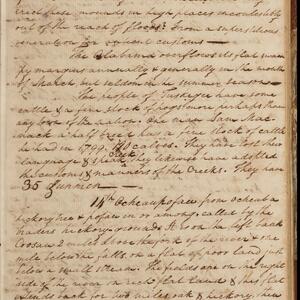 erect these mounds in high places incontestably
out of the reach of floods? From a superstitious
veneration for ancient customs —
The Alabama overflows its flat swam
py margins annually & generally in the month
of March but seldom in the summer season
The people of Tuskegee have some
cattle & a fine stock of hogs more perhaps than
any town of the nation. One man Sam Mac
nack a half breed has a fine stock of cattle
he had in 1799, 180 calves. They have lost their
language & speak Creek, they likewise have adopted
the customs & manners of the Creeks. They have
35 Gunmen —
14th Ocheaupofau from Ocheuba
hickory tree & pofau in or among, called by the
traders hickory-ground. It is on the left bank
Coosau 2 miles above the fork of the river & one
mile below the falls, on a flat of poor land just
below a small stream. The fields are on the right
side of the river on rich flat land & this
extends back for two miles oak & hickory, then